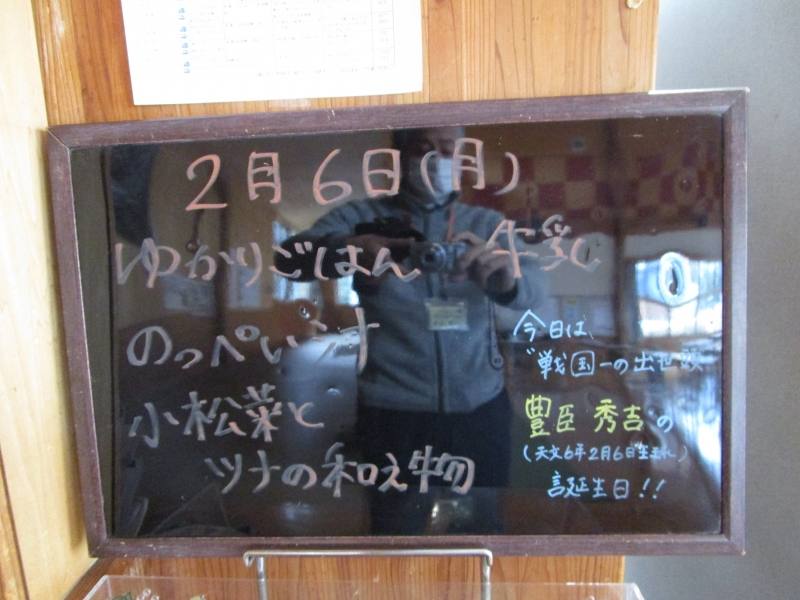 2月6日(月)
ゆかりごはん 牛乳
のっぺい汁
小松菜と
ツナの和え物
今日は、
"戦国一の出世頭
豊臣 秀吉"の
(天文6年2月6日生まれ)
誕生日!!